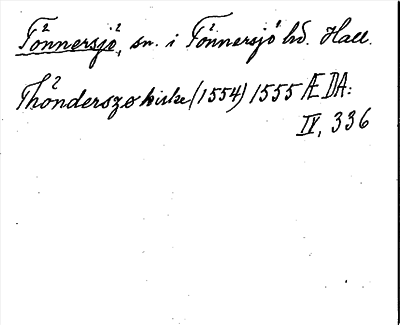 Tönnersjö, sn. i Tönnersjö hd. Hall.
Thönderszø kirke (1554) 1555 ÆDA:
IV, 336